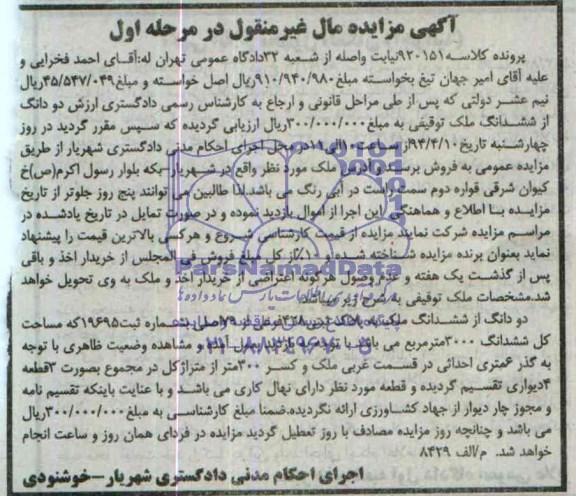 آگهی مزایده مال غیرمنقول در مرحله اول
پرونده کلاسه۹۲۰۱۵۱نیابت واصله از شعبه ۳۲دادگاه عمومی تهران له:آقای احمد فخرایی و
علیه آقای امیر جهان تیغ بخواسته مبلغ۹۱۰/۹۴۰/۹۸۰ریال اصل خواسته و مبلغ۴۵/۵۴۷/۰۴۹ریال
نیم عشر دولتی که پس از طی مراحل قانونی و ارجاع به کارشناس رسمی دادگستری ارزش دو دانگ
از ششدانگ ملک توقیفی به مبلغ۳۰۰/۰۰۰/۰۰۰ریال ارزیابی گردیده که سپس مقرر گردید در روز
چهارشنبه تاریخ۹۴/۴/۱۰از ساعت۱۰الی۱۱در محل اجرای احکام مدنی دادگستری شهریار از طریق
مزایده عمومی به فروش برسد و آدرس ملک مورد نظر واقع در شهریار-بکه بلوار رسول اکرم(ص)خ
کیوان شرقی قواره دوم سمت راست در آبی رنگ می باشد.لذا طالبین می توانند پنج روز جلوتر از تاریخ
مزایده با اطلاع و هماهنگی این اجرا از اموال بازدید نموده و در صورت تمایل در تاریخ یادشده در
مراسم مزایده شرکت نمایند مزایده از قیمت کارشناسی شروع و هرکس بالاترین قیمت را پیشنهاد
نماید بعنوان برنده مزایده شناخته شده و ۱۰٪از کل مبلغ فروش فی المجلس از خریدار اخذ و باقی
پس از گذشت یک هفته و عدم وصول هرگونه اعتراضی از خریدار اخذ و ملک به وی تحویل خواهد
شد.مشخصات ملک توقیفی به شرح زیر میباشد:
دو دانگ از ششدانگ ملک به پلاک ثبتی ۴۲۸فرعی از ۷۹اصلی شماره ثبت۱۹۶۹۵که مساحت
کل ششدانگ ۳۰۰۰مترمربع می باشد با توجه به بعمل آمده و مشاهده وضعیت ظاهری با توجه
به گذر ۶متری احداثی در قسمت غربی ملک و کسر ۳۰۰متر از متراژکل در مجموع بصورت ۳قطعه
۴دیواری تقسیم گردیده و قطعه مورد نظر دارای نهال کاری می باشد و با عنایت باینکه تقسیم نامه
و مجوز چار دیوار از جهاد کشاورزی ارائه نگردیده.ضمنا مبلغ کارشناسی به مبلغ۳۰۰/۰۰۰/۰۰۰ریال
می باشد و چنانچه روز مزایده مصادف با روز تعطیل گردید مزایده در فردای همان روز و ساعت انجام
خواهد شد. م/الف ۸۴۲۹
اجرای احکام مدنی دادگستری شهریار-خوشنودی
ParsNamadData